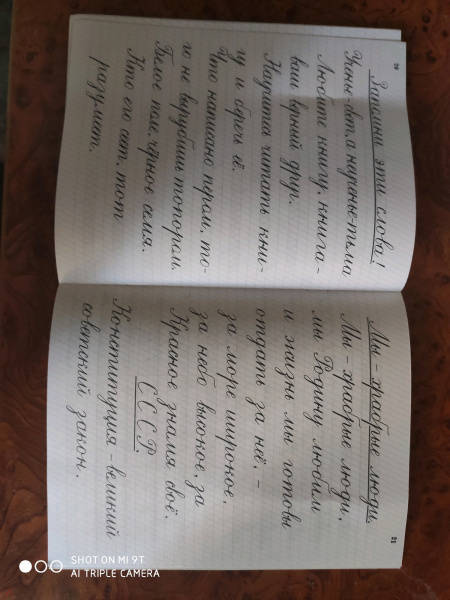 20
Запомни эти слова!
Ученье-свет, а неученье-тьма
Любите книгу, книга-
ваш верный друг.
Научитсь читать кни-
гу и беречь её.
Что написано пером, то-
го не вырубишь топором.
Белое поле, чёрное семя.
Кто его сеет, тот
разумеет.
21
Мы - храбрые люди.
Мы - храбрые люди,
мы Родину любим
и жизнь мы готовы
отдать за неё, -
за море широкое,
за небо высокое, за
Красное знамя своё.
СССР.
Конституция - великий
советский закон.
SHOT ON MI 9T
AI TRIPLE CAMERA